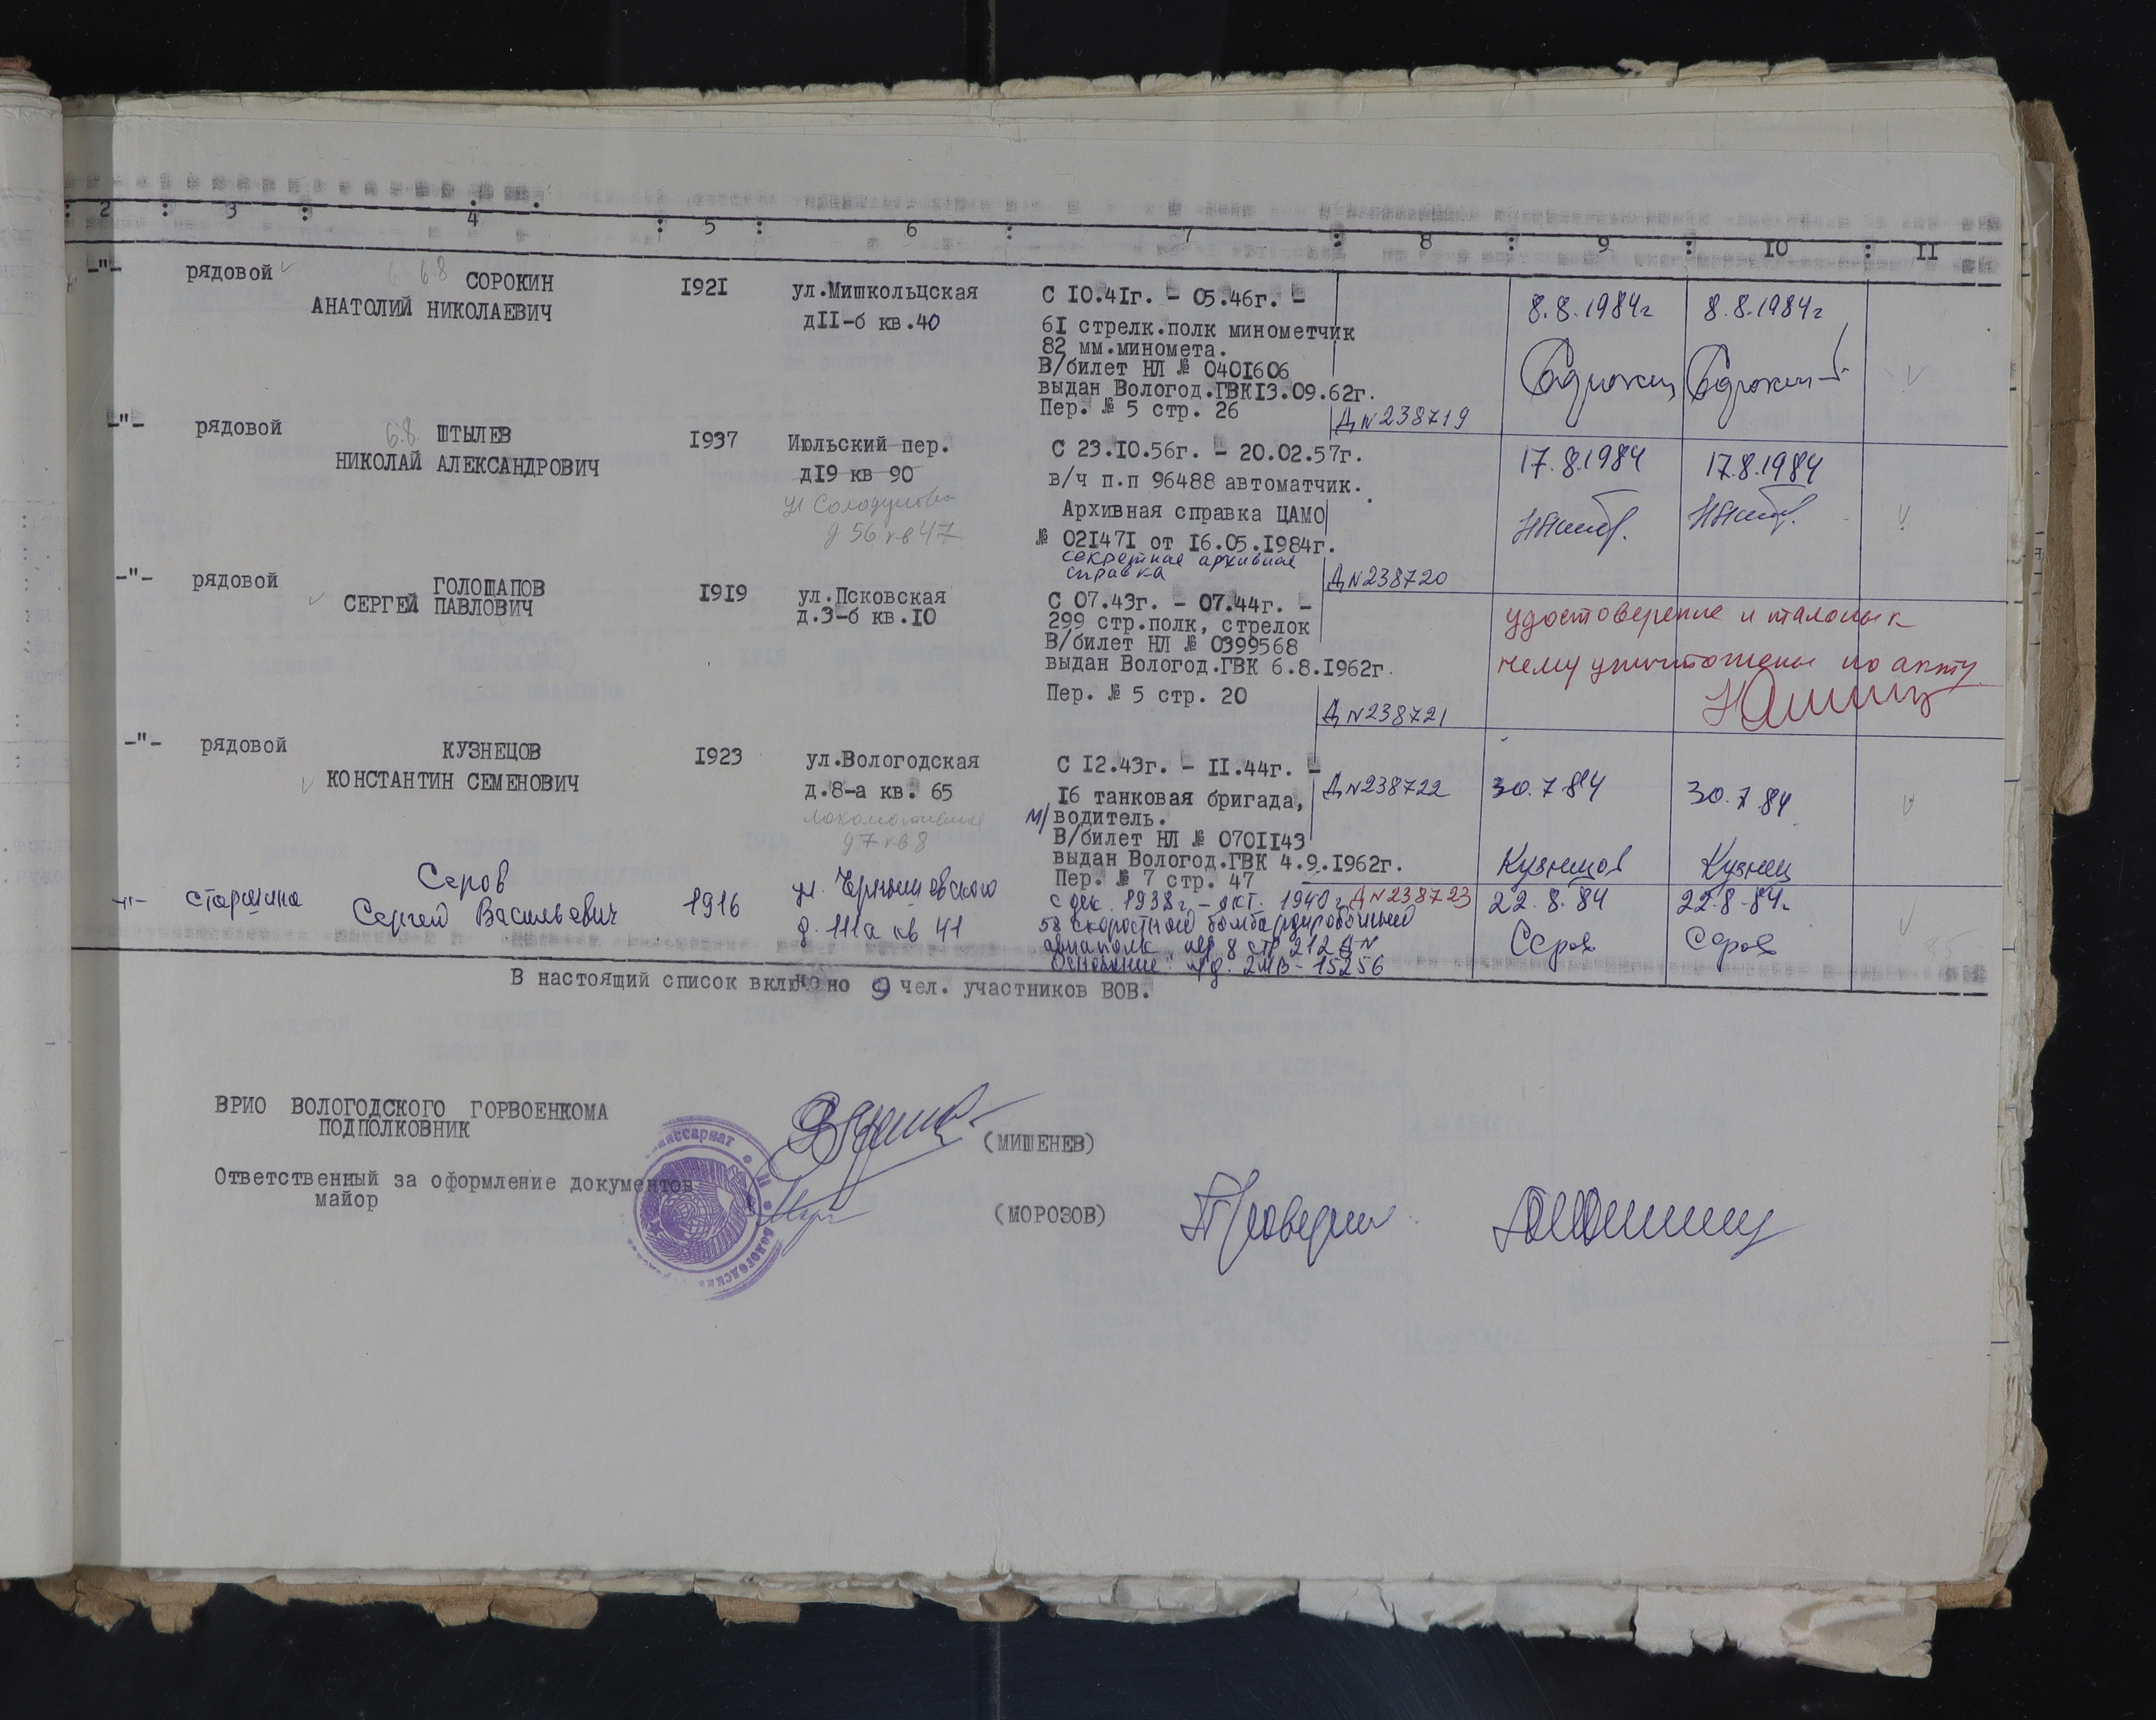 2 : 3 : 4 : 5 : 6 : 7 : 8 : 9 : 10 : 11
-"- рядовой 6.8 СОРОКИН
АНАТОЛИЙ НИКОЛАЕВИЧ
1921
ул.Мишкольцская
д11-б кв.40
С 10.41г. - 05.46г. -
61 стрелк.полк минометчик
82 мм.миномета.
В/билет НЛ № 0401606
выдан Вологод.ГВК13.09.62г.
Пер. № 5 стр. 26
Д № 238719
8.8.1984г 8.8.1984г
-"- рядовой 6.8 ШТЫЛЕВ
НИКОЛАЙ АЛЕКСАНДРОВИЧ
1937
Июльский пер.
д19 кв 90
д 56 кв 47
С 23.10.56г. - 20.02.57г.
в/ч п.п 96488 автоматчик.
Архивная справка ЦАМО
№ 021471 от 16.05.1984г.
секретная архивная
справка
Д № 238720
17.8.1984 17.8.1984
-"- рядовой ГОЛОЩАПОВ
СЕРГЕЙ ПАВЛОВИЧ
1919
ул.Псковская
д.3-б кв.10
С 07.43г. - 07.44г. -
299 стр.полк, стрелок
В/билет НЛ № 0399568
выдан Вологод.ГВК 6.8.1962г.
Пер. № 5 стр. 20
Д № 238721
удостоверение и талоны к
нему уничтожены по акту
-"- рядовой КУЗНЕЦОВ
КОНСТАНТИН СЕМЕНОВИЧ
1923
ул.Вологодская
д.8-а кв. 65
Локомотивная
д 7 кв 8
С 12.43г. - 11.44г. -
16 танковая бригада,
м/водитель.
В/билет НЛ № 0701143
выдан Вологод.ГВК 4.9.1962г.
Пер. № 7 стр. 47
Д № 238722
30.7.84 30.7.84
Кузнецов Кузнец
-"- старшина Серов
Сергей Васильевич
1916
ул. Чернышевского
д. 111а кв 41
с дек. 1938г. - окт. 1940г. Д № 238723
58 скоростной бомбардировочный
авиаполк пер 8 стр 212
Основание:
22.8.84 22.8.84г.
Серов Серов
В настоящий список включено 9 чел. участников ВОВ.
ВРИО ВОЛОГОДСКОГО ГОРВОЕНКОМА
ПОДПОЛКОВНИК
(МИШЕНЕВ)
Ответственный за оформление документов
майор
(МОРОЗОВ)
Проверил